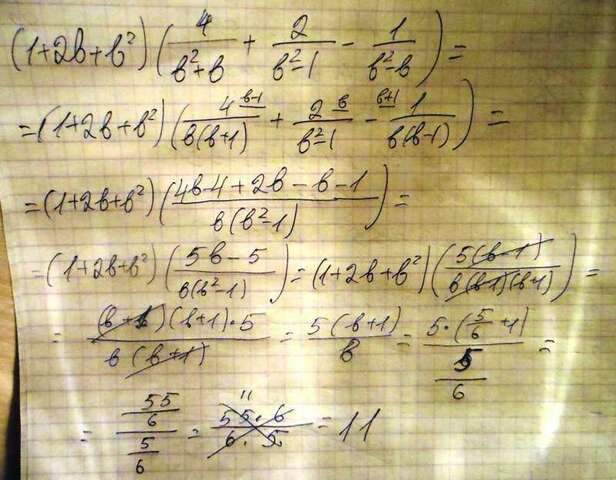 (1+2b+b²)(4/(b²+b) + 2/(b²-1) - 1/(b²-b)) =
=(1+2b+b²)(4^(b-1)/(b(b+1)) + 2^(b)/(b²-1) - ^(b+1)1/(b(b-1))) =
=(1+2b+b²)((4b-4+2b-b-1)/(b(b²-1))) =
=(1+2b+b²)((5b-5)/(b(b²-1))) = (1+2b+b²)((5(b-1))/(b(b-1)(b+1))) =
= ((b+1)(b+1)·5)/(b(b+1)) = (5(b+1))/b = (5·(5/6+1))/(5/6) =
= (55/6)/(5/6) = (55·6)/(6·5) 11 = 11